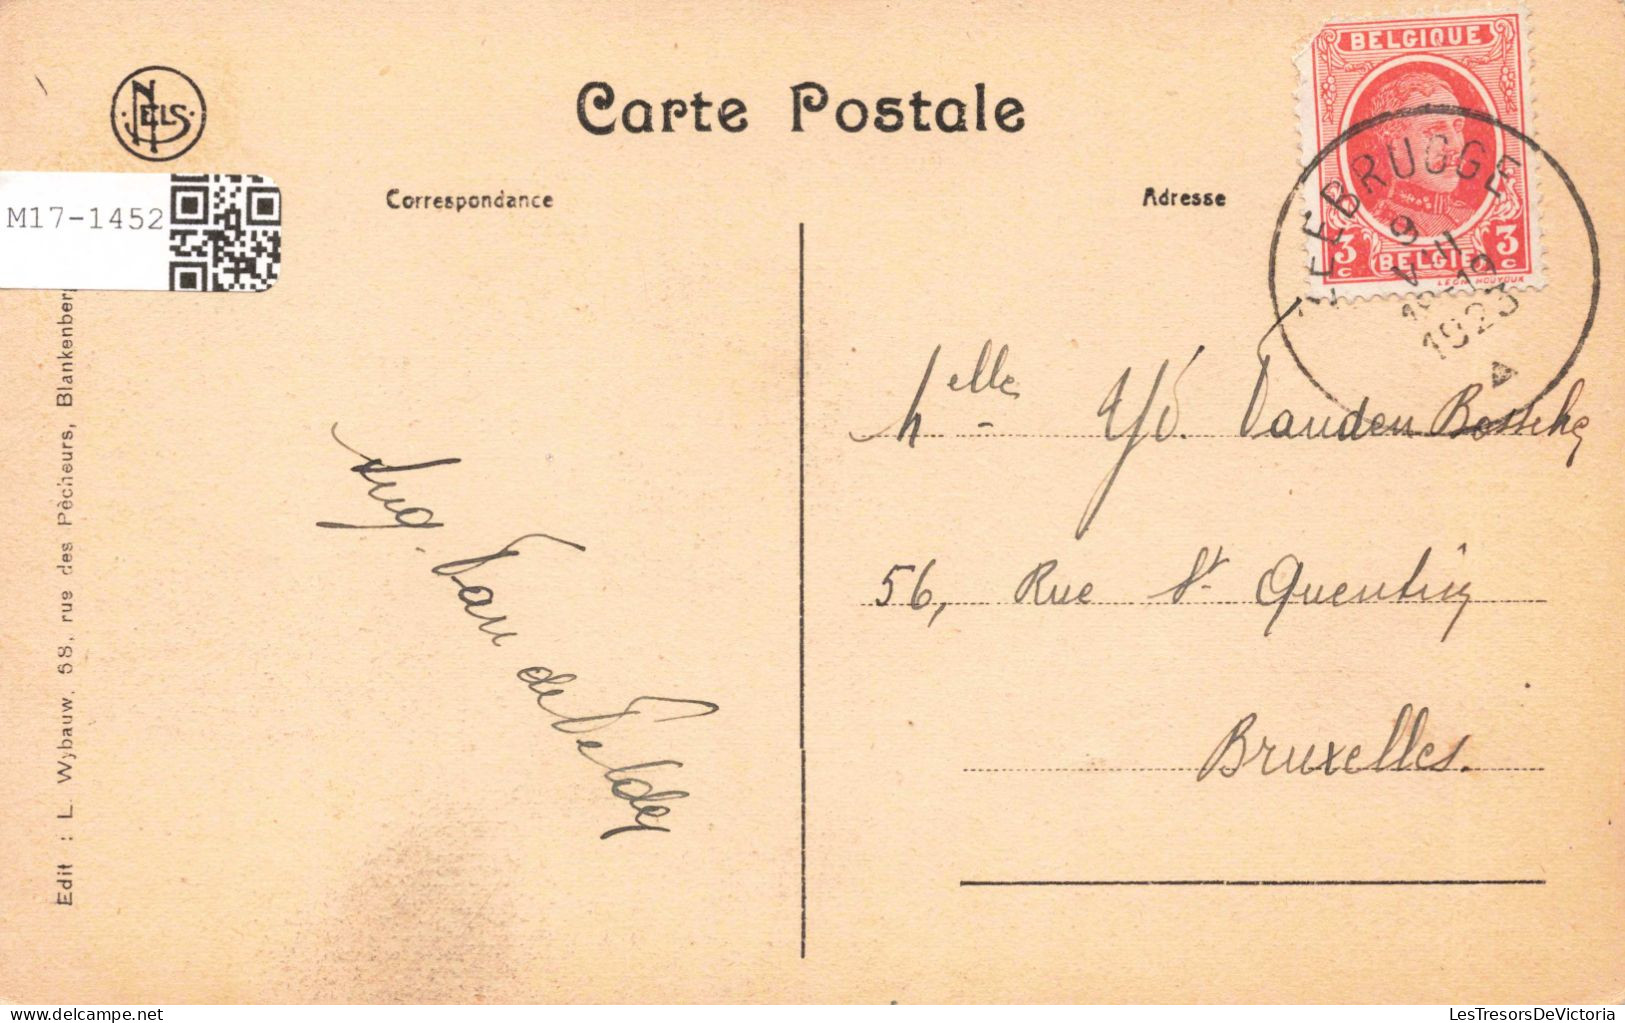 NELS
Carte Postale
Correspondance
Adresse
M17-1452
BELGIQUE
3 c BELGIE 3 c
LEGR. HOUYOUX
ZEEBRUGGE
9
VII
18-19
1923
Melle Vanden Bossche
56, Rue St Quentin
Bruxelles.
Aug. Van de Velde
Edit : L. Wybauw, 58, rue des Pêcheurs, Blankenber
LesTresorsDeVictoria